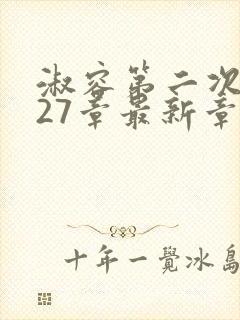 淑容第二次
27章最新章
十年一觉冰岛